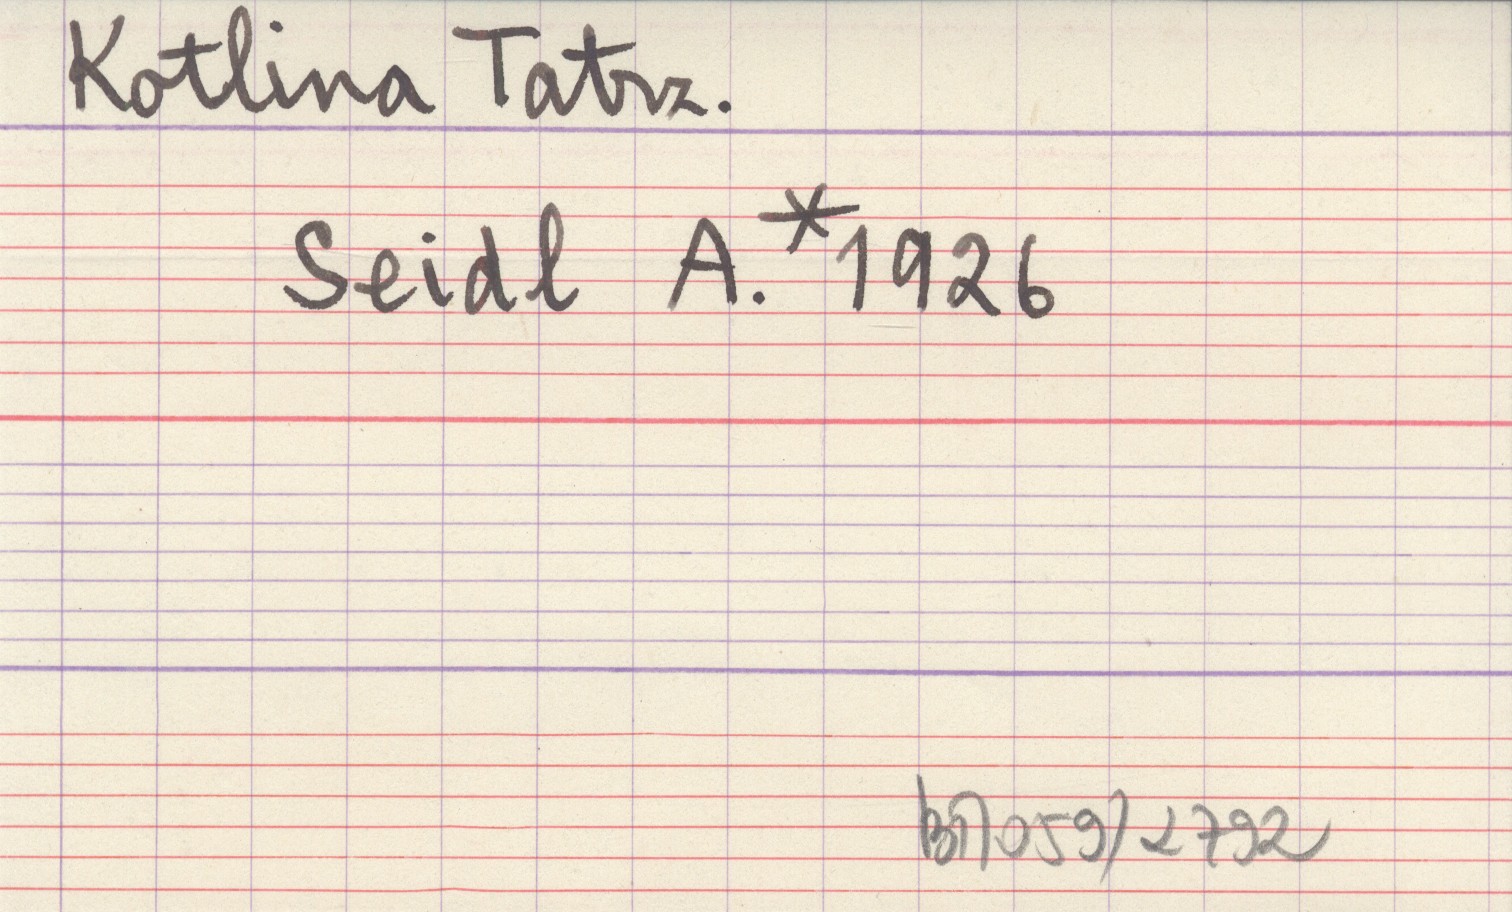 Kotlina Tatrz.
Seidl A.*1926
2792